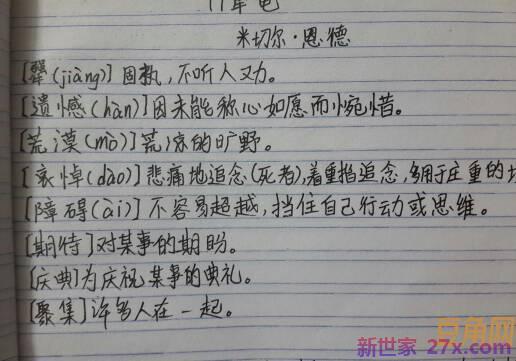 米切尔·恩德
[犟(jiàng)]固执,不听人劝。
[遗憾(hàn)]因未能称心如愿而惋惜。
[荒漠(mò)]荒凉的旷野。
[哀悼(dào)]悲痛地追念(死者),着重指追念,多用于庄重的
[障碍(ài)]不容易超越,挡住自己行动或思维。
[期待]对某事的期盼。
[庆典]为庆祝某事的典礼。
[聚集]许多人在一起。
豆角网
新世家 27x.com